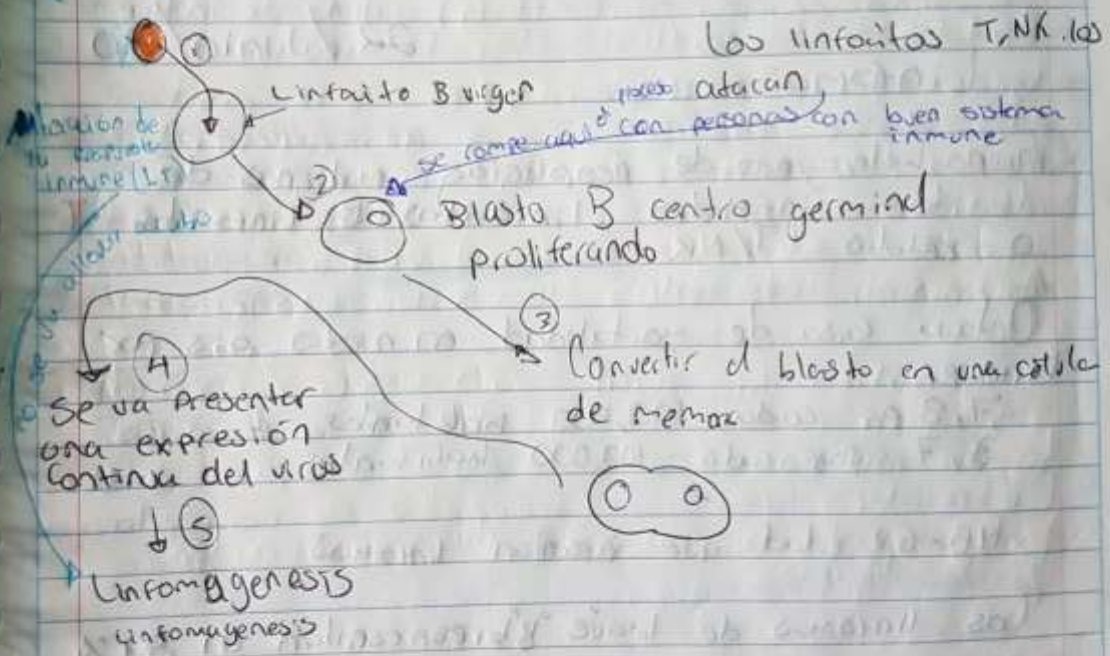 Los linfocitos T, NK. los
①
Linfocito B virgen
proceso atacan,
se rompe aquí con personas con buen sistema
inmune
inmune (LT)
②
Blasto B centro germinal
proliferando
③
Convertir el blasto en una célula
de memor
④
Se va presentar
una expresión
continua del virus
⑤
Linfomagenesis
Linfomagenesis